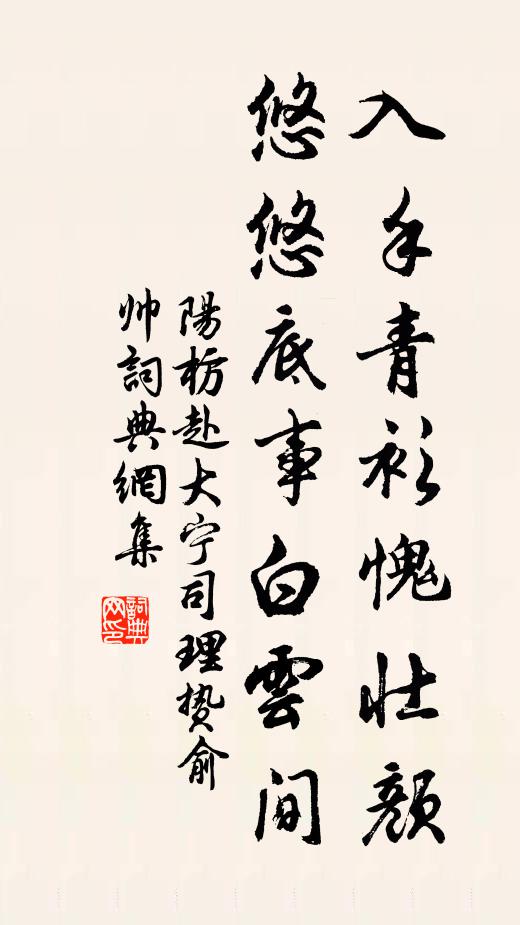 入手青衫愧壮颜
悠悠底事白雲间
陽枋赴大宁司理贽俞
帅詞典網集
詞典
网印